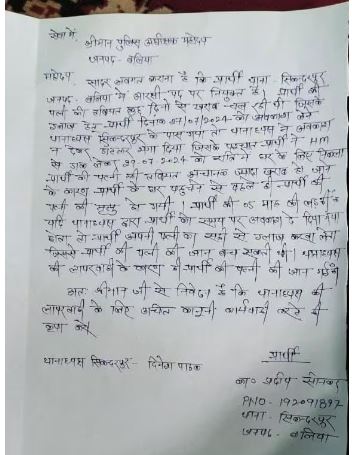 सेवा में,
श्रीमान पुलिस अधीक्षक महोदय
जनपद- बलिया
महोदय, सादर अवगत कराना है कि प्रार्थी थाना- सिकन्दरपुर
जनपद- बलिया में आरक्षी पद पर नियुक्त है। प्रार्थी की
पत्नी की तबियत कुछ दिनो से खराब चल रही थी जिसके
ईलाज हेतु प्रार्थी दिनांक 29/07/2024 को अवकाश लेने
थानाध्यक्ष सिकन्दरपुर के पास गया तो थानाध्यक्ष ने अवकाश
न देकर
से डाक लेकर 29.07.2024 को रात्रि में घर के लिए निकला
प्रार्थी की पत्नी की तबियत अचानक ज्यादा खराब हो जाने
के कारण प्रार्थी के घर पहुंचने से पहले ही प्रार्थी की
पत्नी की मृत्यु हो गयी। प्रार्थी की 05 माह की बच्ची है
यदि थानाध्यक्ष द्वारा प्रार्थी को समय पर अवकाश दे दिया गया
होता तो प्रार्थी अपनी पत्नी का सही से ईलाज करवा लेता
जिससे प्रार्थी की पत्नी की जान बच सकती थी। थानाध्यक्ष
की लापरवाही के कारण ही प्रार्थी की पत्नी की जान गई है
अतः श्रीमान जी से निवेदन है कि थानाध्यक्ष की
लापरवाही के लिए उचित कानूनी कार्यवाही करने की
कृपा करें।
प्रार्थी
थानाध्यक्ष सिकन्दरपुर- दिनेश पाठक
का० प्रदीप सोनकर
PNO- 192091897
थाना- सिकन्दरपुर
जनपद- बलिया